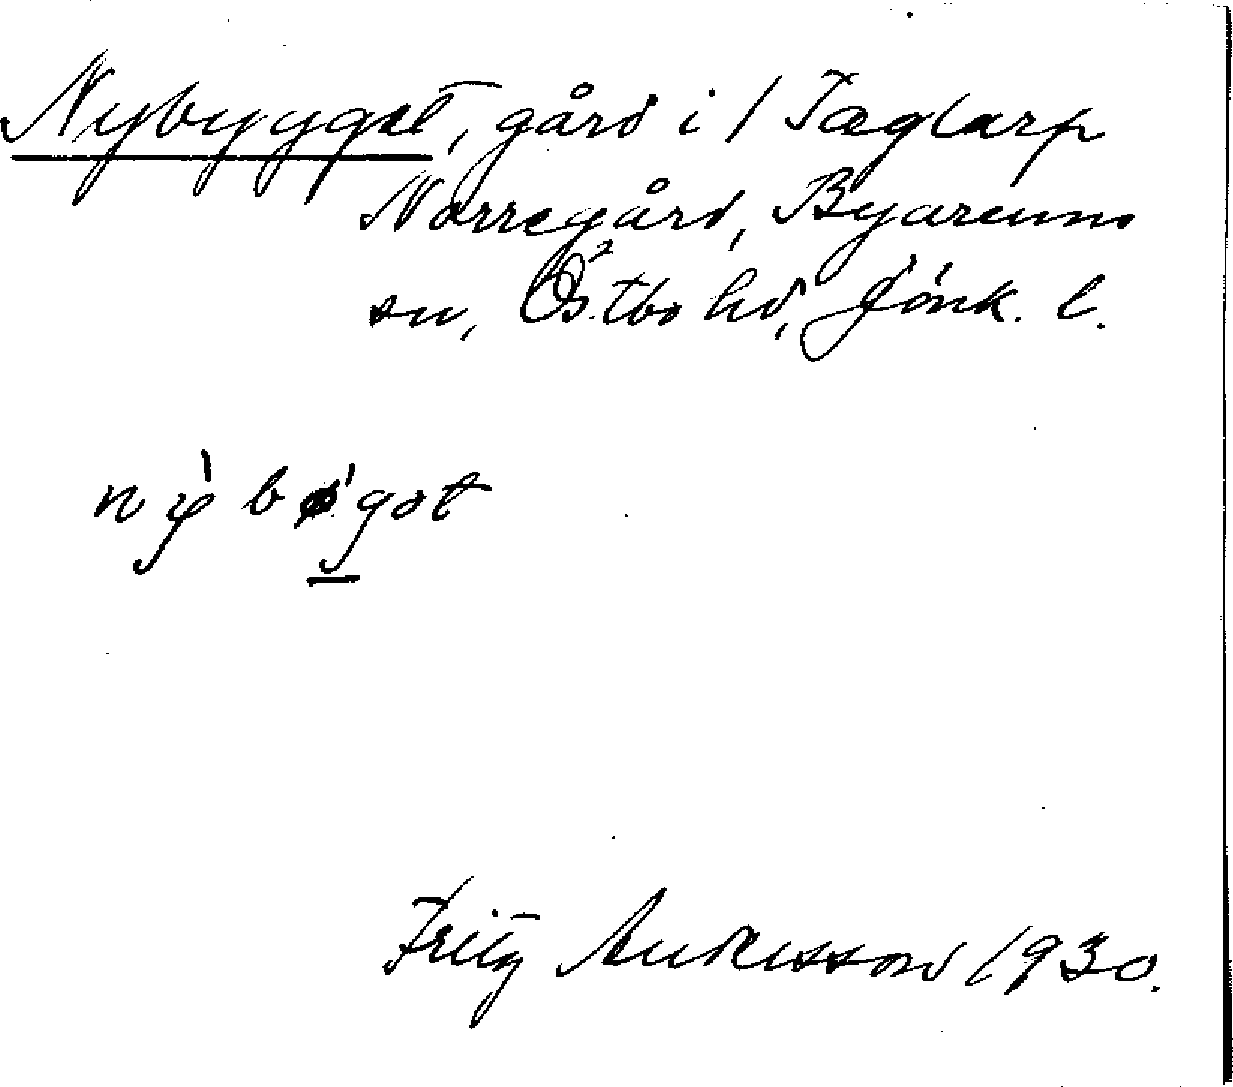 Nybygget, gård i / Taglarp
Norregård, Byarums
sn, Östbo hd, Jönk. l.
Fritz Andersson 1930.